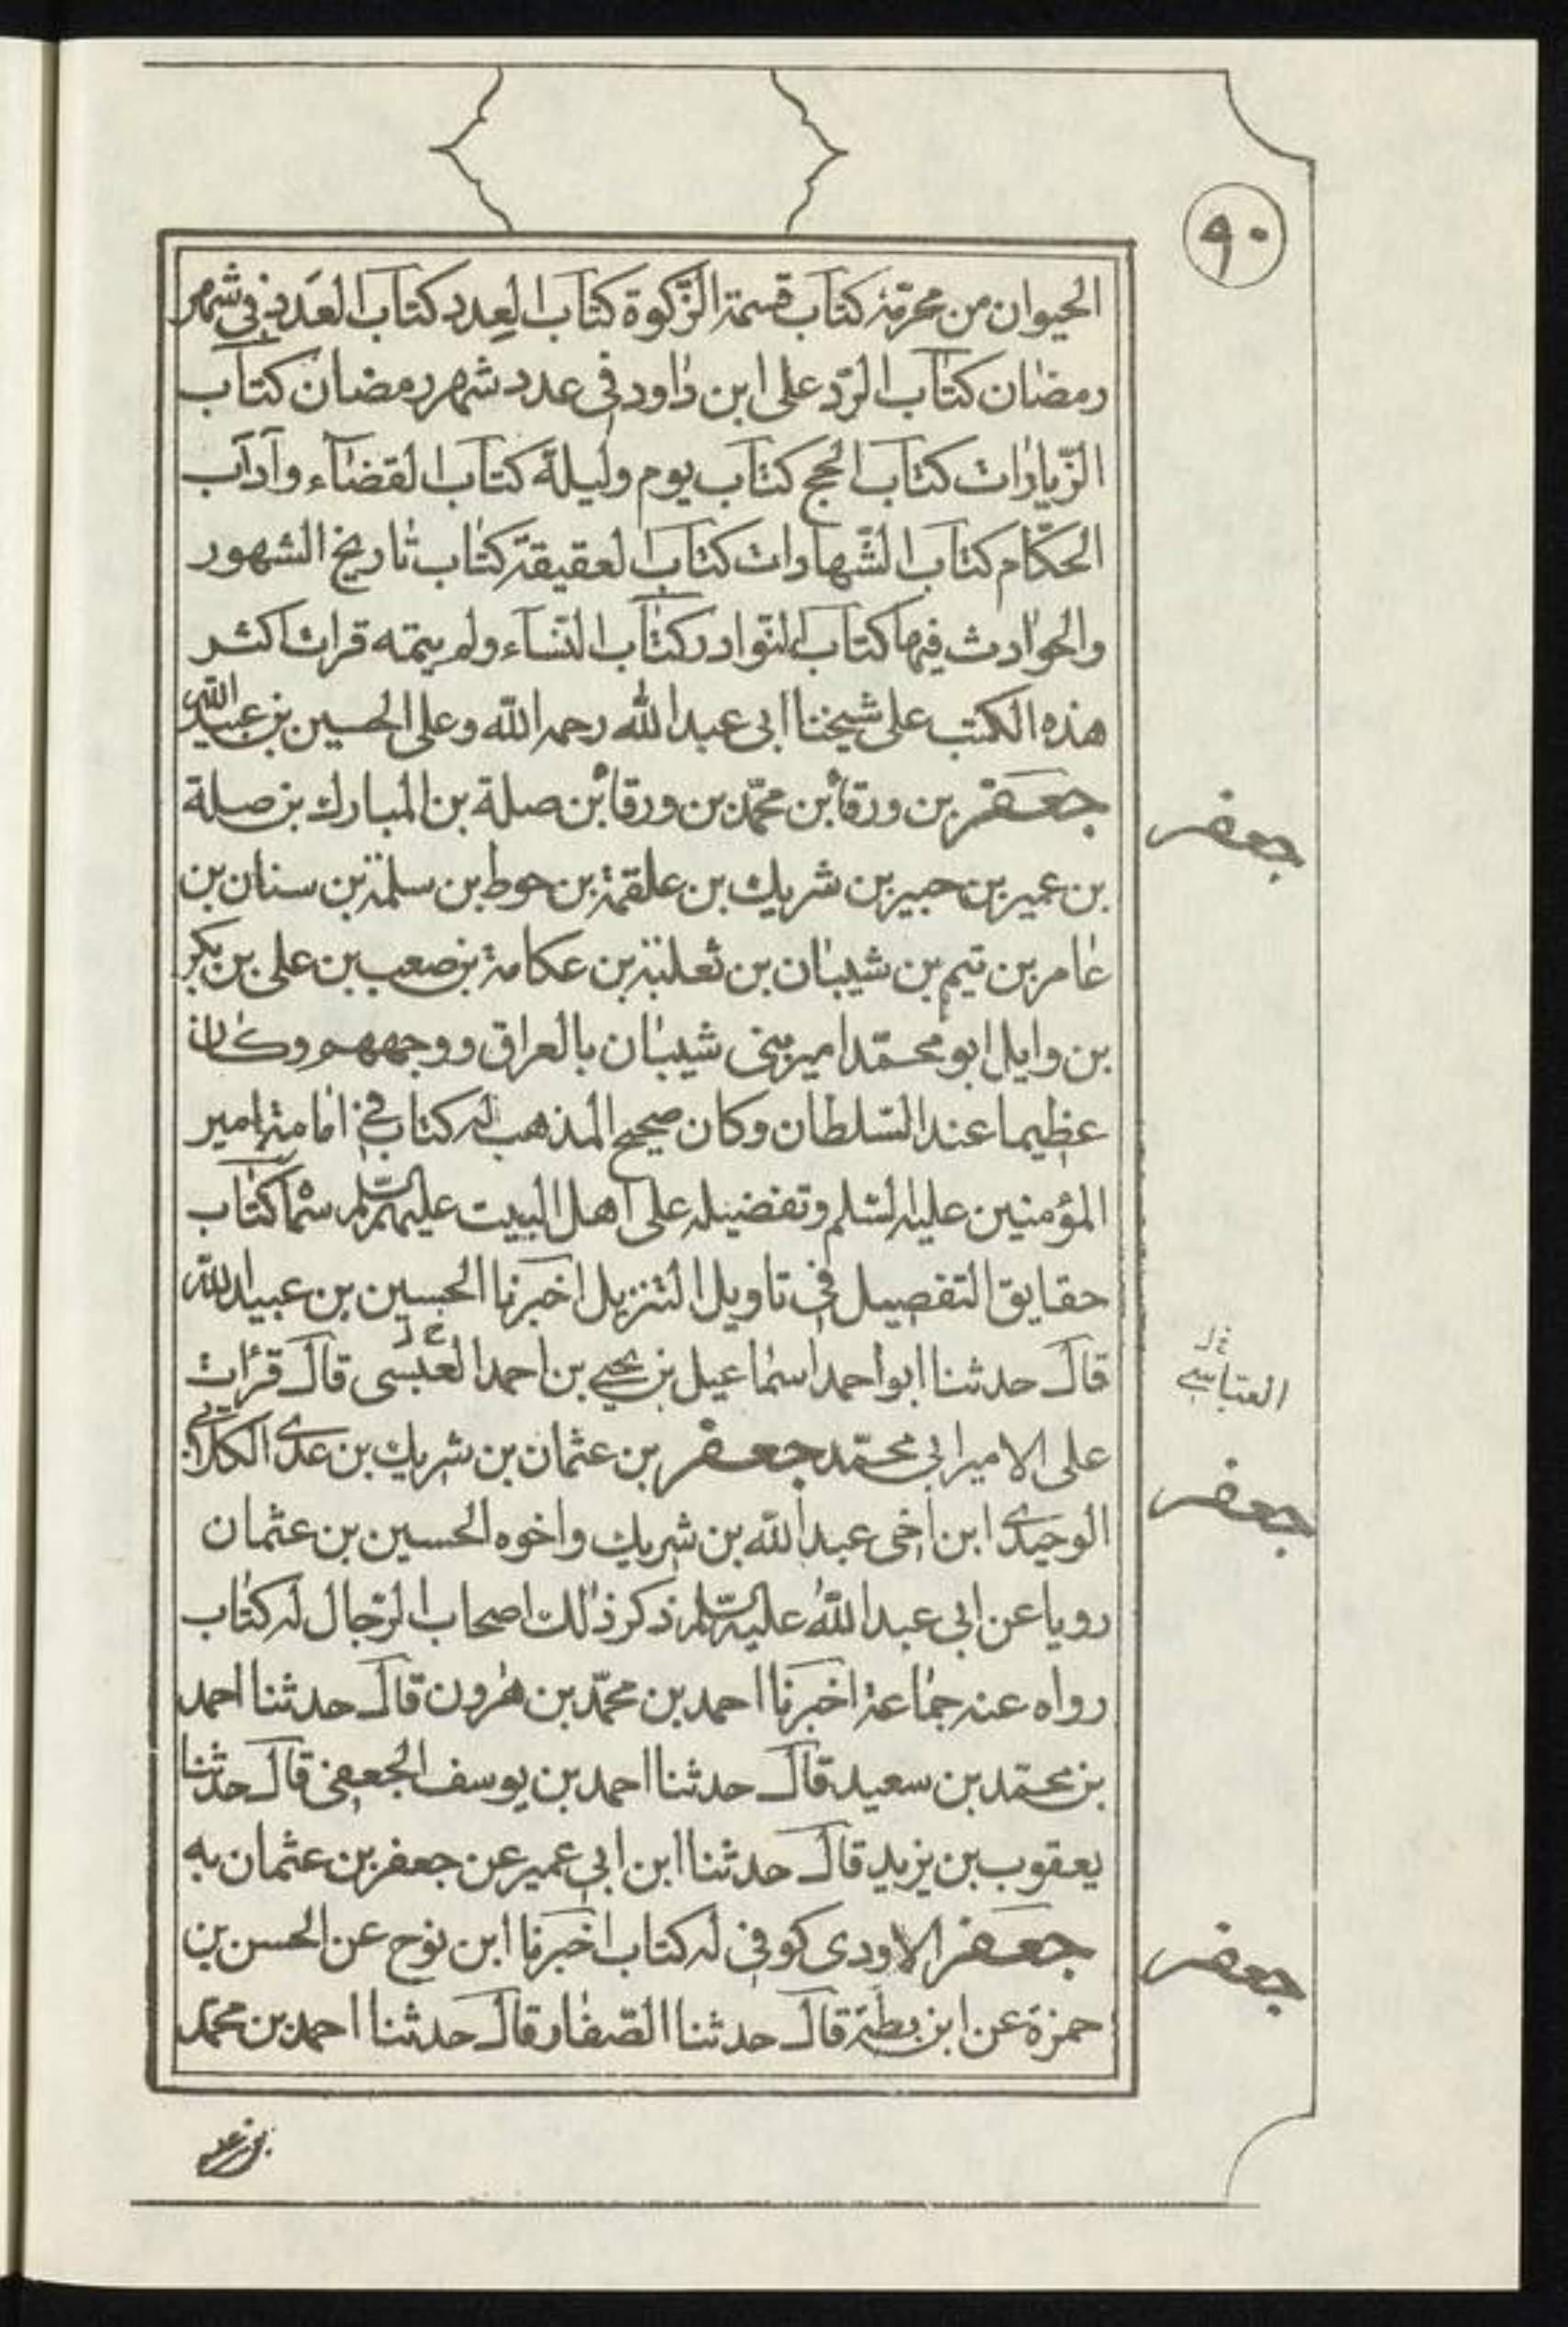 ٩٠
الحيوان من محرمة كتاب قسمة الزّكوة كتاب العِدد كتاب العَدد في شهر
رمضان كتاب الرّد على ابن داود في عدد شهر رمضان كتاب
الزّيارات كتاب الحج كتاب يوم وليلة كتاب القضآء وآداب
الحكّام كتاب الشّهادات كتاب العقيقة كتاب تاريخ الشهور
والحوادث فيها كتاب النّوادر كتاب النّسآء ولم يتمه قرات اكثر
هذه الكتب على شيخنا ابى عبد الله رحمه الله وعلى الحسين بن عبيد الله
جعفر بن ورقاء بن محمّد بن ورقاء بن صلة بن المبارك بن صلة
بن عمير بن جبير بن شريك بن علقمة بن حوط بن سلمة بن سنان بن
عامر بن تيم بن شيبان بن ثعلبة بن عكامة بن صعب بن على بن بكر
بن وايل ابو محمّد امير بنى شيبان بالعراق ووجههم وكان
عظيما عند السّلطان وكان صحيح المذهب له كتاب في امامة امير
المؤمنين عليه السّلم وتفضيله على اهل البيت عليهم السّلم سمّاه كتاب
حقايق التفصيل في تاويل التنزيل اخبرنا الحسين بن عبيد الله
قال حدثنا ابو احمد اسماعيل بن يحيى بن احمد العبسى قال قرأت
على الامير ابي محمّد جعفر بن عثمان بن شريك بن عدى الكلابي
الوحيدى ابن اخى عبد الله بن شريك واخوه الحسين بن عثمان
رويا عن ابى عبد الله عليه السّلم ذكر ذلك اصحاب الرّجال له كتاب
رواه عنه جماعة اخبرنا احمد بن محمّد بن هرون قال حدثنا احمد
بن محمّد بن سعيد قال حدثنا احمد بن يوسف الجعفى قال حدثنا
يعقوب بن يزيد قال حدثنا ابن ابي عمير عن جعفر بن عثمان به
جعفر الاودى كوفي له كتاب اخبرنا ابن نوح عن الحسن بن
حمزة عن ابن بطة قال حدثنا الصّفار قال حدثنا احمد بن محمّد
جعفر
العباسي
جعفر
جعفر